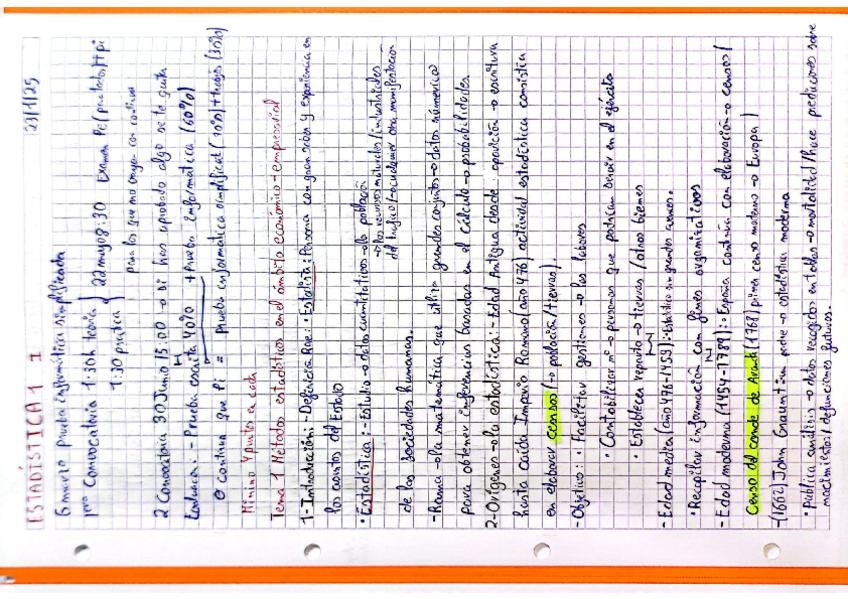 ESTADÍSTICA 1 1 23/1/25
6 marzo prueba informática simplificada
1era Convocatoria 1:30h teoría } 22 mayo 8:30 Examen Pe(prueba)+Pi
1:30 práctica para los que no vayan con continua
2 Convocatoria 30 Junio 15:00 → si has aprobado algo se te guarda
Evaluación: - Prueba escrita 40% + Prueba Informática (60%)
O continua que Pi = prueba informática simplificat( )+ (30%)
Minimo 4 puntos en cada
Tema 1 Métodos estadísticos en el ámbito económico-empresarial
1-Introducción: - Definición Rae: • Estadista: Persona con gran saber y experiencia en
los asuntos del Estado
• Estadística: - Estudio → datos cuantitativos → la población
→ los recursos naturales/industriales
del tráfico/→ cualquier otra manifestación
de las sociedades humanas.
- Rama → la matemática que utiliza grandes conjuntos → datos númericos
para obtener inferencias basadas en el cálculo → probabilidades
2-Orígenes → la estadística: - Edad Antigua desde: aparición → escritura
hasta caída Imperio Romano (año 476) actividad estadística consistía
en elaborar censos (→ población/tierras).
- Objetivo: • Facilitar gestiones → las labores
• Contabilizar nº → personas que podían servir en el ejército
• Establecer reparto → tierras/otros bienes
- Edad media (año 476-1453): Estadística sin grandes avances.
• Recopilar información con fines organizativos
- Edad moderna (1454-1789): • España continua con elaboración → censos/
Censo del conde de Aranda (1768) primer censo moderno → Europa)
- (1662) John Graunt → estadística moderna
• Publica análisis → datos recogidos en tablas → mortalidad/hace predicciones sobre
nacimientos/defunciones futuros.